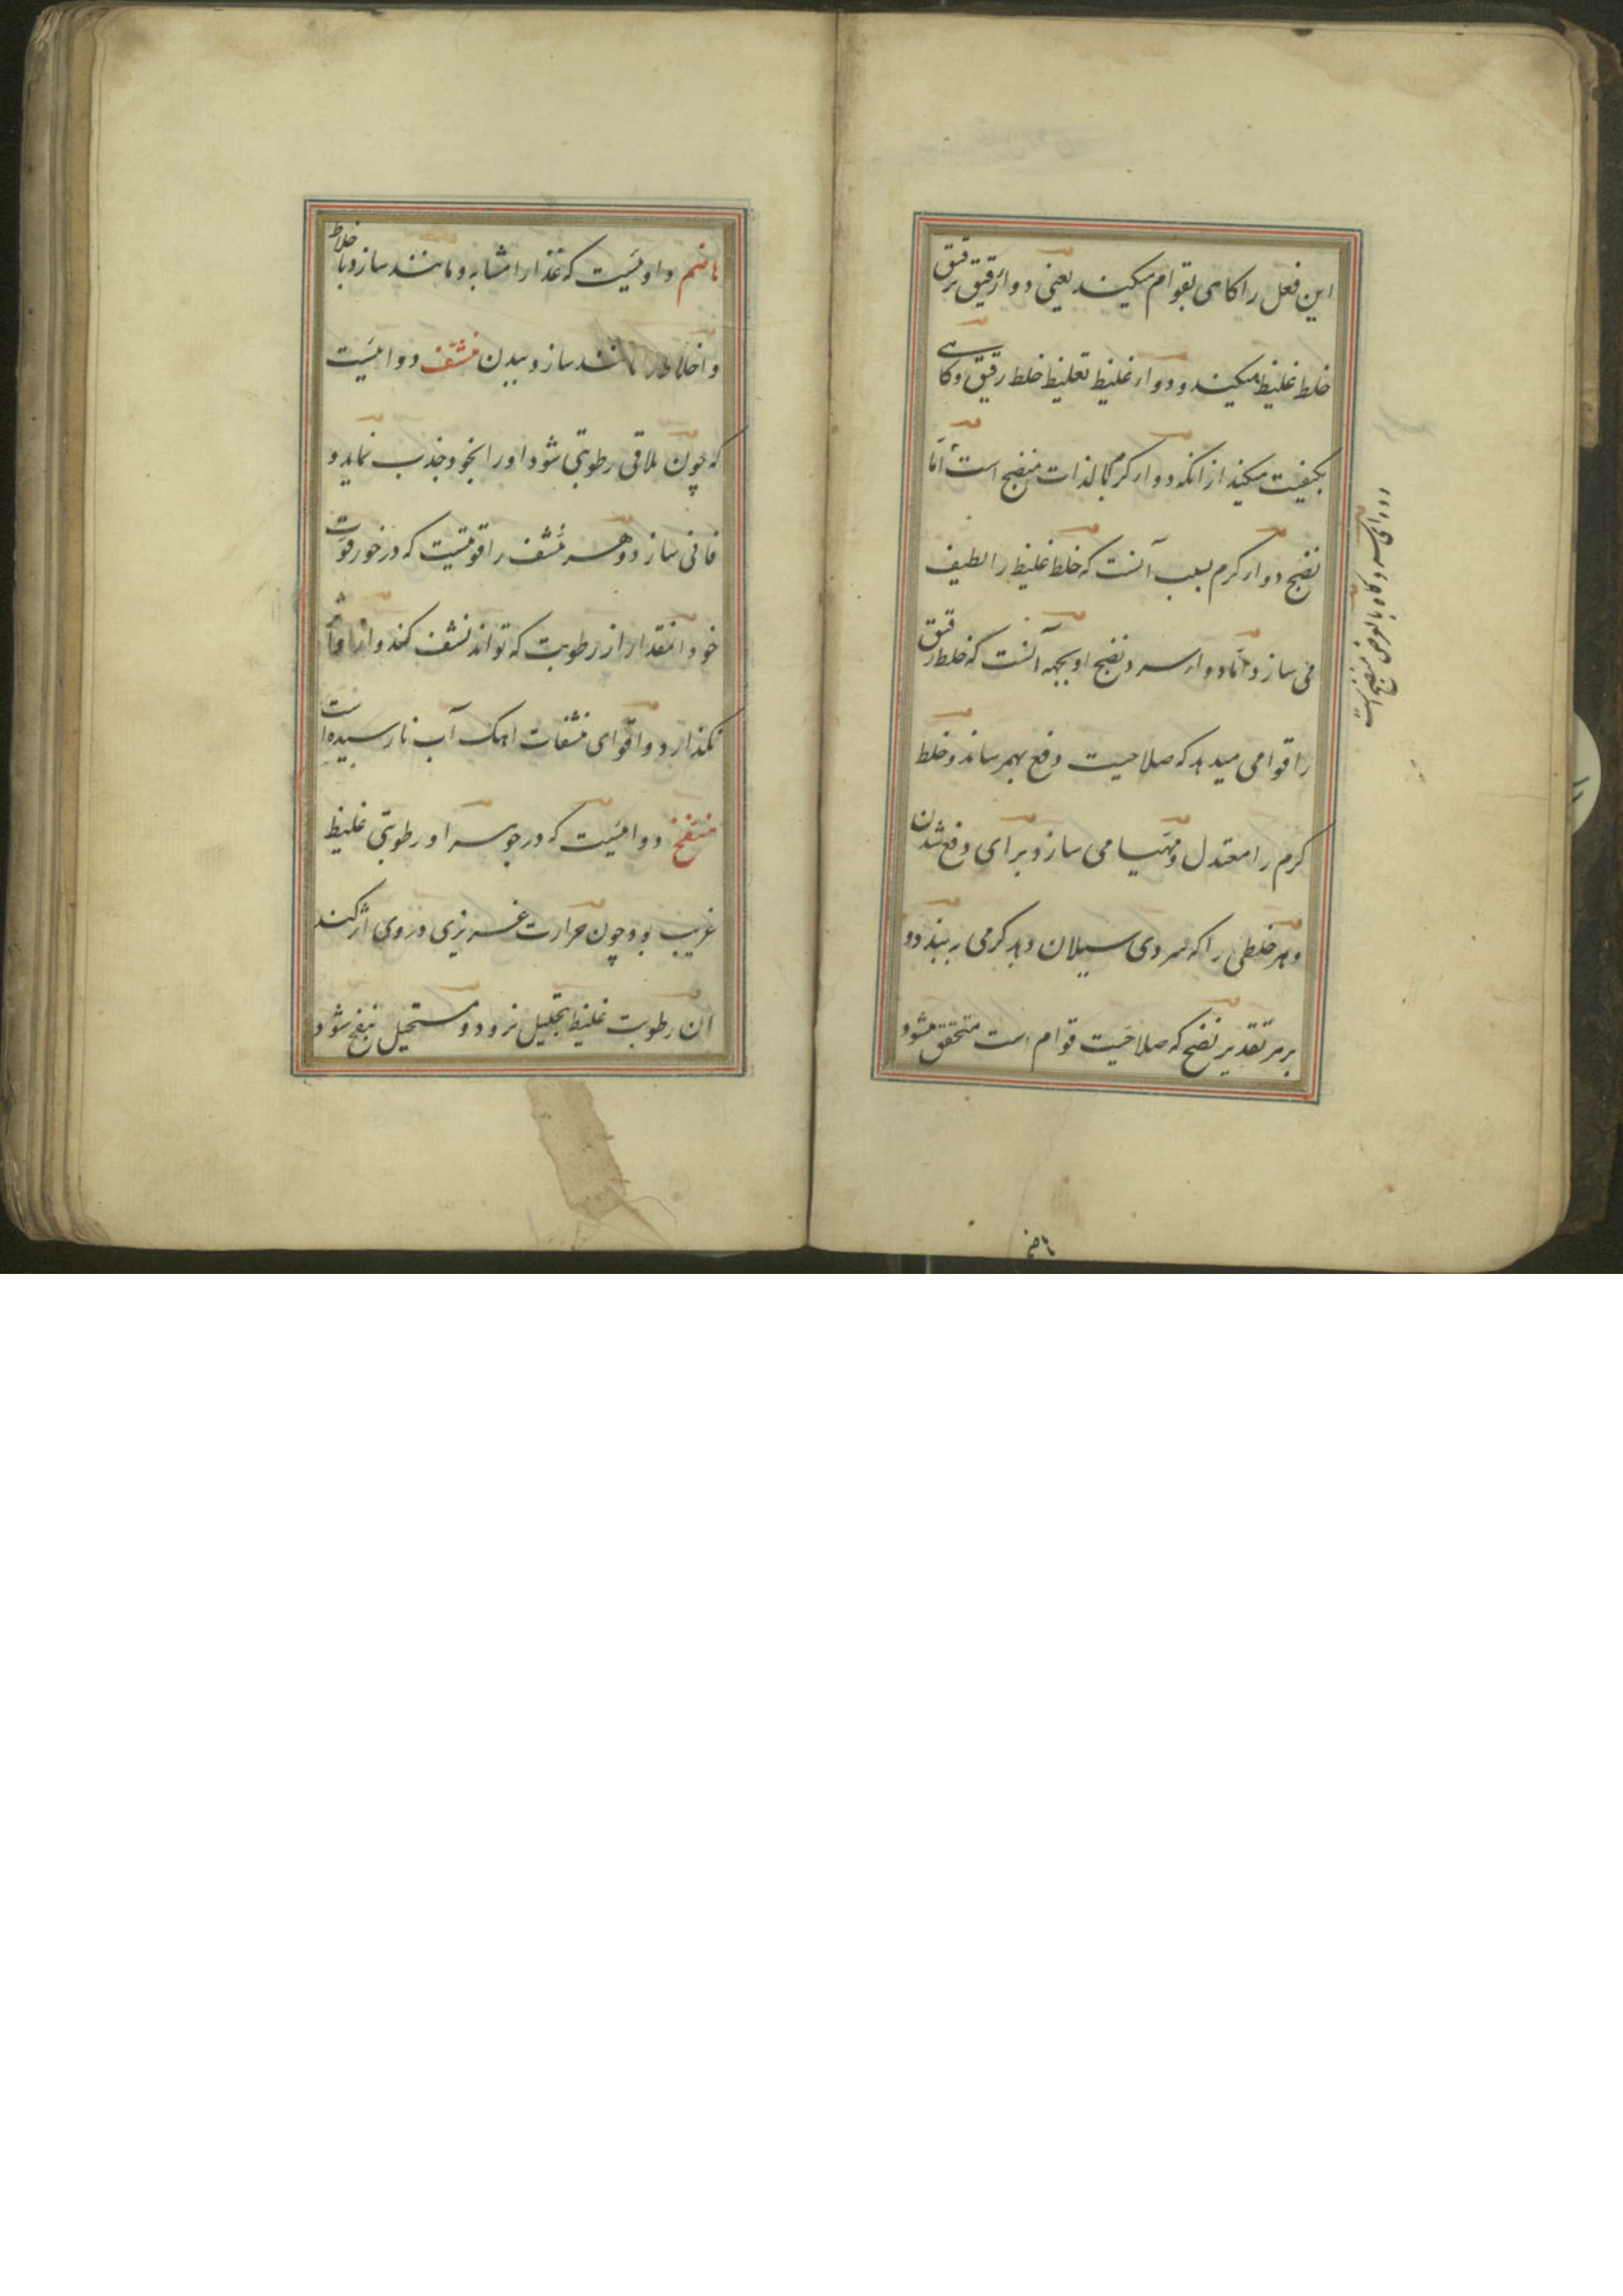 این فعل را کاهی بقوام میکند یعنی دواء رقیق ترقیق
خلط غلیظ میکند و دواء غلیظ تغلیظ خلط رقیق و کاهی
بکیفیت میکند از انکه دواء کرم بالذات منضج است امّا
نضج دواء کرم بسبب آنست که خلط غلیظ را لطیف
می سازد امّا دواء سرد نضج او بجهه آنست که خلط رقیق
را قوامی میدهد که صلاحیت دفع بهم رساند و خلط
کرم را معتدل و مهیا می سازد برای دفع شدن
و هر خلطی را که سردی سیلان دهد کرمی ببندد و
بر هر تقدیر نضج که صلاحیت قوام است متحقق میشود
دوای سرد کاه بالعرض منضج است
هاضم
هاضم دوائیست که غذا را مشابه و مانند سازد باخلاط
و اخلاط را مانند سازد ببدن منشّف دوائیست
که چون ملاقی رطوبتی شود او را بخود جذب نماید و
فانی سازد و هر منشف را قوتیست که در خور قوت
خود انمقدار از رطوبت که تواند نشف کند و از ما
نکذارد و اقوای منشفات اهک آب نارسیده است
منفّخ دوائیست که در جوهر او رطوبتی غلیظ
غریب بود چون حرارت غریزی در وی اثر کند
ان رطوبت غلیظ بتحلیل نرود و مستحیل بنفخ شود